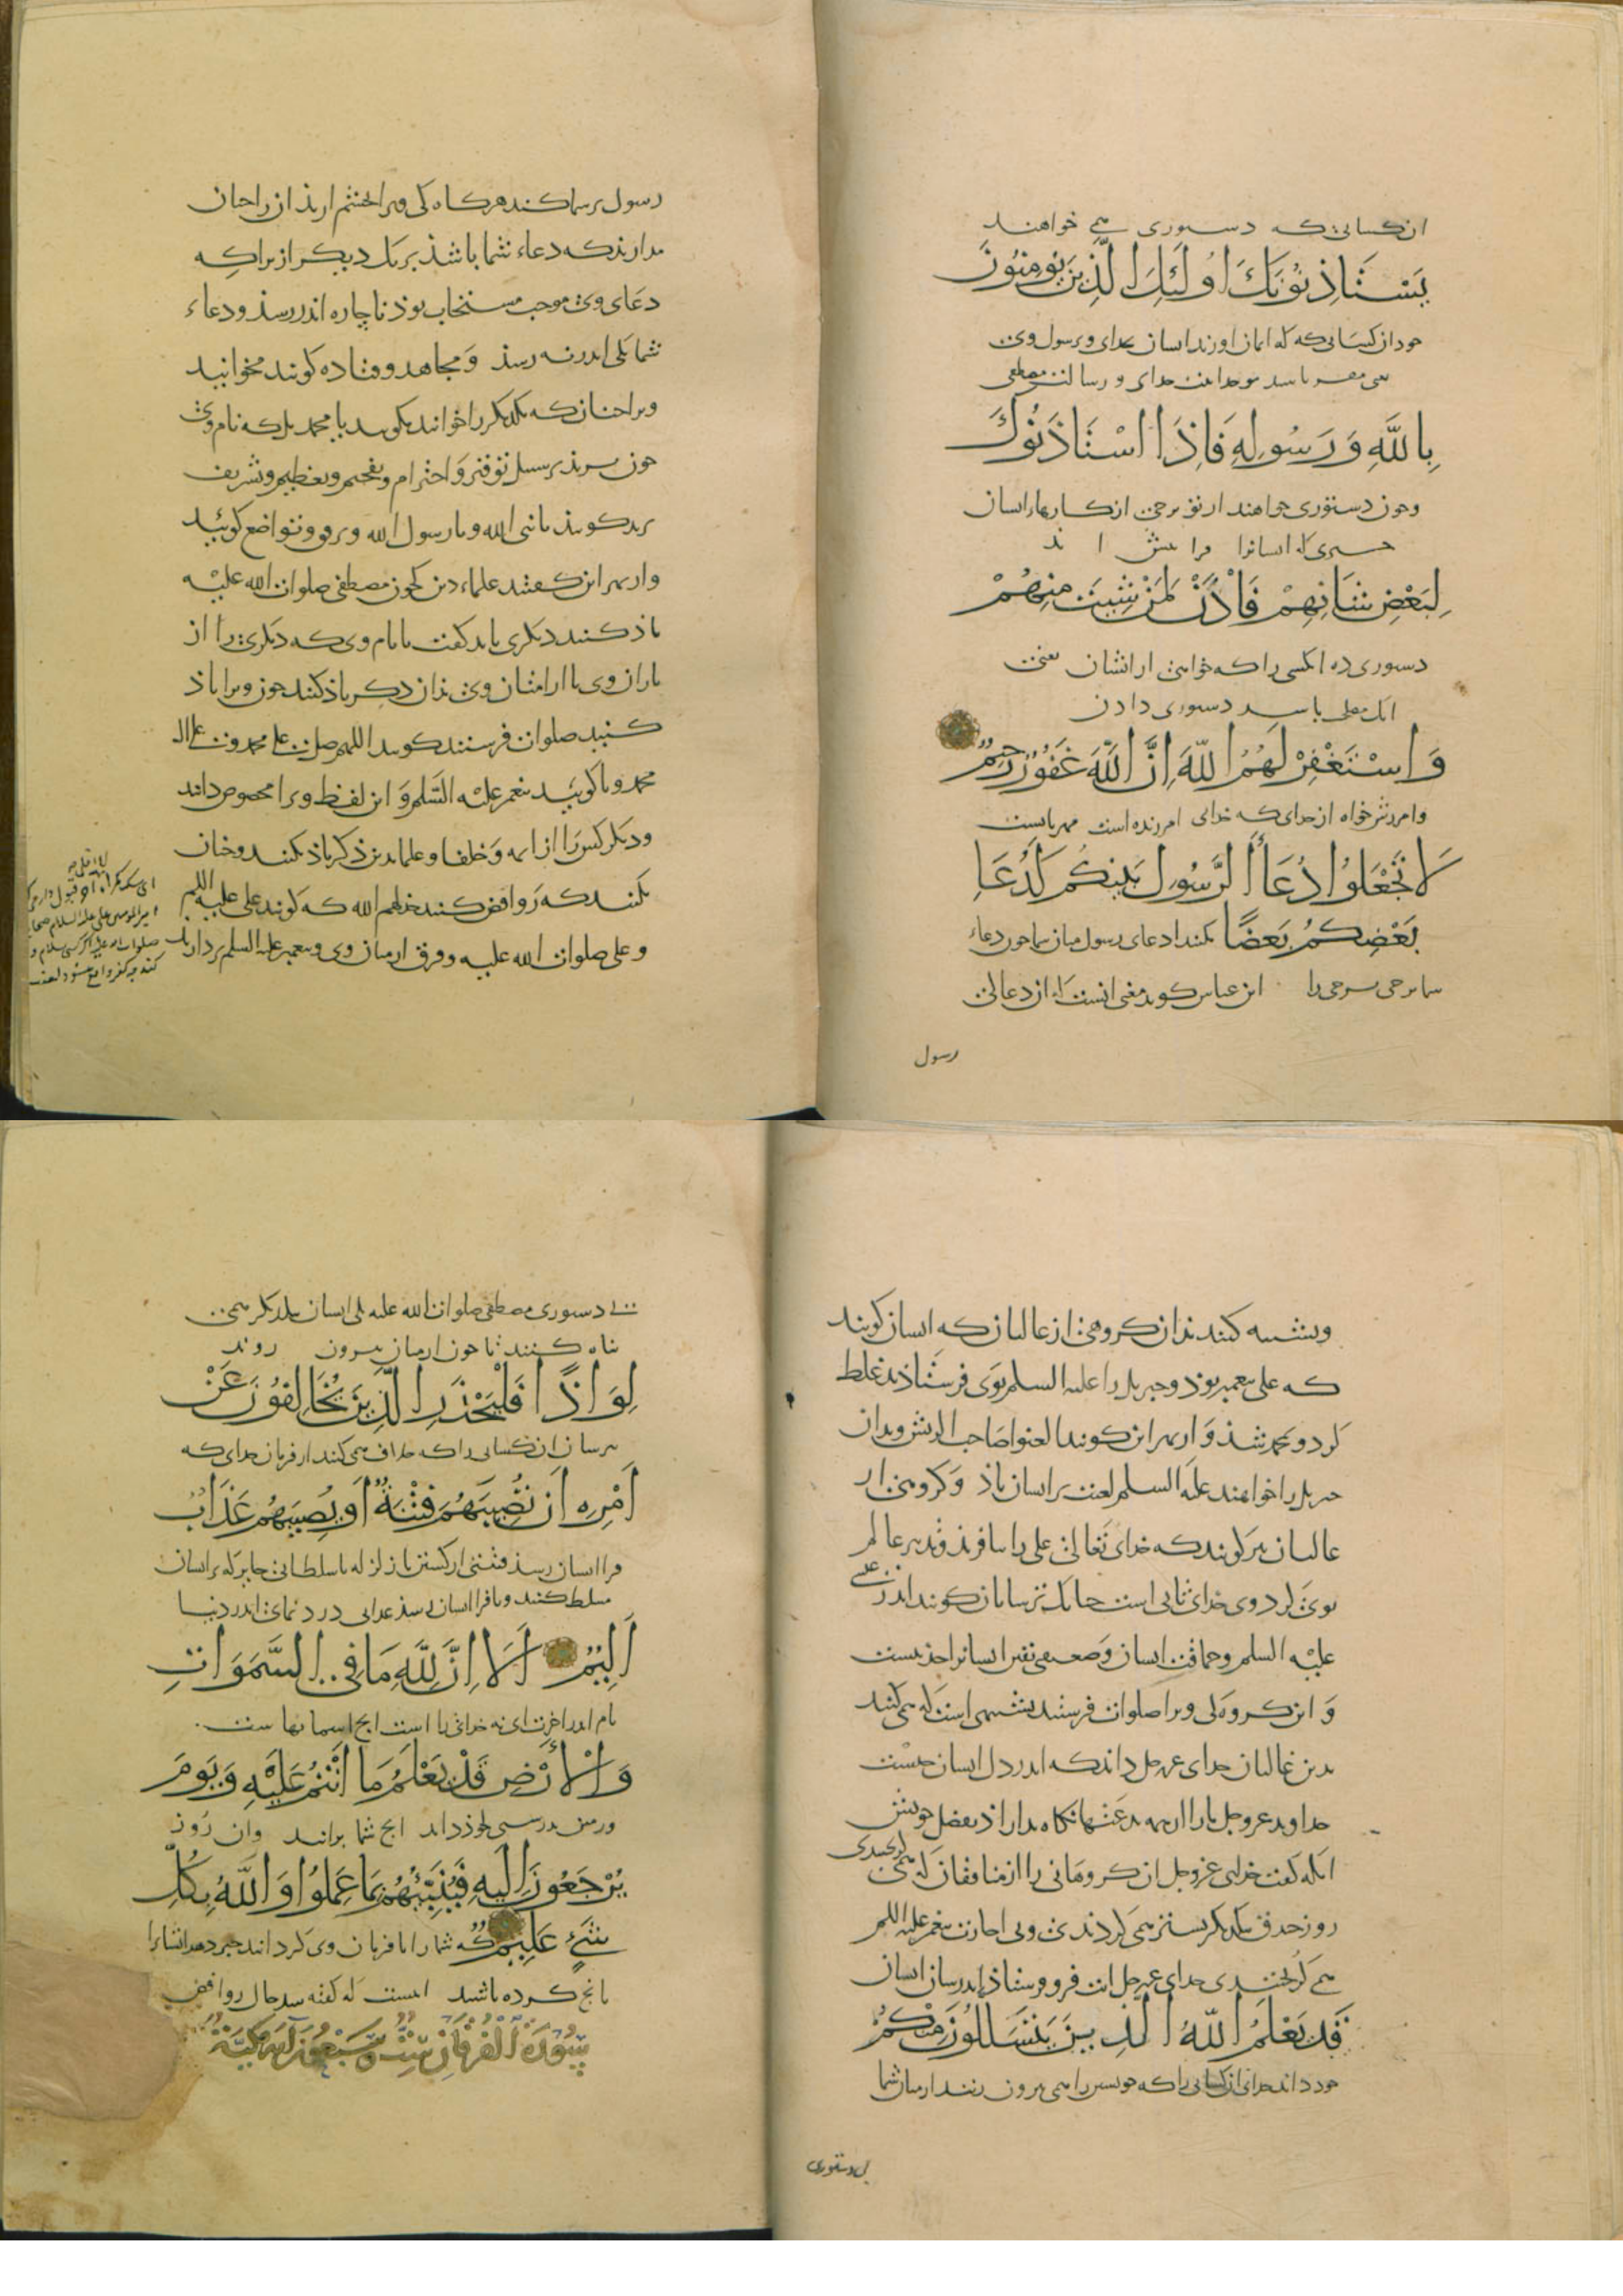 ان کسانی که دستوری می خواهند
یَسْتَاذِنُونَكَ اُولٰئِكَ الَّذِینَ یُومِنُونَ
خود ان کسانی که که ایمان اورند ایسان بخدای و برسول وی
یعنی مقر باسند بوحدانیت خدای و رسالت مصطفی
بِاللّٰهِ وَرَسُولِهِ فَاِذَا اسْتَاذَنُوكَ
و چون دستوری خواهند از تو برخی از کارهاء ایسان
جیزی که ایسانرا فرا بیش اید
لِبَعْضِ شَانِهِمْ فَاْذَنْ لِمَنْ شِیتَ مِنْهُمْ
دستوری ده انکسی را که خواهی از ایشان یعنی
دستوری دادن
وَاسْتَغْفِرْ لَهُمُ اللّٰهَ اِنَّ اللّٰهَ غَفُورٌ رَحِیمٌ
و امرزش خواه از خدای که خدای امرزنده است مهربانست
لَا تَجْعَلُوا دُعَاءَ الرَّسُولِ بَیْنَكُم كَدُعَاءِ
بَعْضِكُم بَعضًا مکنید ادعای رسول میان سما جون دعاء
سما برخی برخی را ابن عباس کوید معنی انست که از دعا ان
رسول
رسول بر سما کند هرکاه کی ویرا بخشم ارید ان را جنان
مدارید که دعاء شما باشد بر یک دیکر ازیرا که
دعای وی موجب مستجاب بوذ ناچاره اندر رسد و دعاء
شما یکی اندر نه رسد و مجاهد و قتاده کویند مخوانید
ویرا جنان که یکدیکر را خوانید مکویید یا محمد بل که نام وی
جون برید بر سبیل توقیر و احترام و تفخیم و تعظیم و تشریف
برید کویید یا نبی الله و یا رسول الله و برفق و تواضع کویید
و از بهر این کفتند علماء دین کی جون مصطفی صلوات الله علیه
یاذ کنند دیکری باید کفت با نام وی که دیکری را از
یاران وی یا از امتان وی بذان ذکر یاذ کنند جون ویرا یاذ
کنید صلوات فرستند کویید اللهم صل علی محمد و علی ال
محمد و یا کویید پیغمبر علیه السلم و این لفظ ویرا مخصوص دانید
و دیکر کس را از ایمه و خلفا و علما بدین ذکر یاذ نکنند و جنان
نکنند که روافض کنند خذلهم الله که کویند علی علیه السلم
و علی صلوات الله علیه و فرق از میان وی و پیغمبر علیه السلم بردارند
و تشبیه کنند بذان کروهی از غالیان که ایسان کویند
که علی پیغمبر بوذ و جبریل را علیه السلم بوی فرستاذند غلط
کرد و بمحمد شد و از بهر این کویند العنوا صاحب الریش و بدان
جبریل را خواهند علیه السلم لعنت بر ایسان باذ و کروهی از
غالیان نیز کویند که خدای تعالی علی را بیافرید و تدبیر عالم
بوی کرد وی خدای ثانی است جنانک ترسایان کویند اندر عیسی
علیه السلم و حماقت ایسان و ضعیفی یقین ایسانرا حد نیست
و این کروه کی ویرا صلوات فرستند تشبیهی است که می کنند
بدین غالیان خدای عز و جل داند که اندر دل ایسان جیست
خداوند عز و جل ما را از همه بدعتها نکاه داراذ بفضل خویش
انکه کفت خدای عز و جل ان کروهانی را از منافقان که همی
روز خندق بیکدیکر بستر همی کردندی و بی اجازت پیغمبر علیه السلم
می کریختندی خدای عز و جل ایت فرو فرستاذ اندر سان ایسان
قَدْ یَعْلَمُ اللّٰهُ الَّذِینَ یَتَسَلَّلُونَ مِنْكُمْ
خود داند خدای ان کسانی را که خویستن را همی بیرون برند از میان شما
بی دستوری
بی دستوری مصطفی صلوات الله علیه کی ایسان بیکدیکر همی
بناه کنند تا جون از میان بیرون روند
لِوَاذًا فَلْیَحْذَرِ الَّذِینَ یُخَالِفُونَ عَنْ
بترسان ان کسانی را که خلاف می کنند از فرمان خدای که
اَمْرِهِ اَنْ تُصِیبَهُم فِتْنَةٌ اَو یُصِیبَهُم عَذَابٌ
فرا ایسان رسد فتنتی از کشتن یا زلزله یا سلطانی جابر که بر ایسان
مسلط کنند و یا فرا ایسان رسد عذابی دردنمای اندر دنیا
اَلِیمٌ اَلَا اِنَّ لِلّٰهِ مَا فِی السَّمَوَاتِ
یا اندر اخرت ای نه خدای را است انچ اسمانها ست
وَالْاَرْضِ قَدْ یَعْلَمُ مَا اَنْتُمْ عَلَیْهِ وَیَوْمَ
و زمین بدرستی خوذ داند انچ شما برانید وان روز
یُرْجَعُونَ اِلَیهِ فَیُنَبِّئُهُمْ بِمَا عَمِلُوا وَاللّٰهُ بِكُلِّ
شَیْءٍ عَلِیمٌ که شما را با فرمان وی کردانند خبر دهد ایشانرا
بانچ کرده باشند روافض
سُورَةُ الْفُرْقَانِ سَبْعُونَ آیَةً مَكِّیَّةٌ